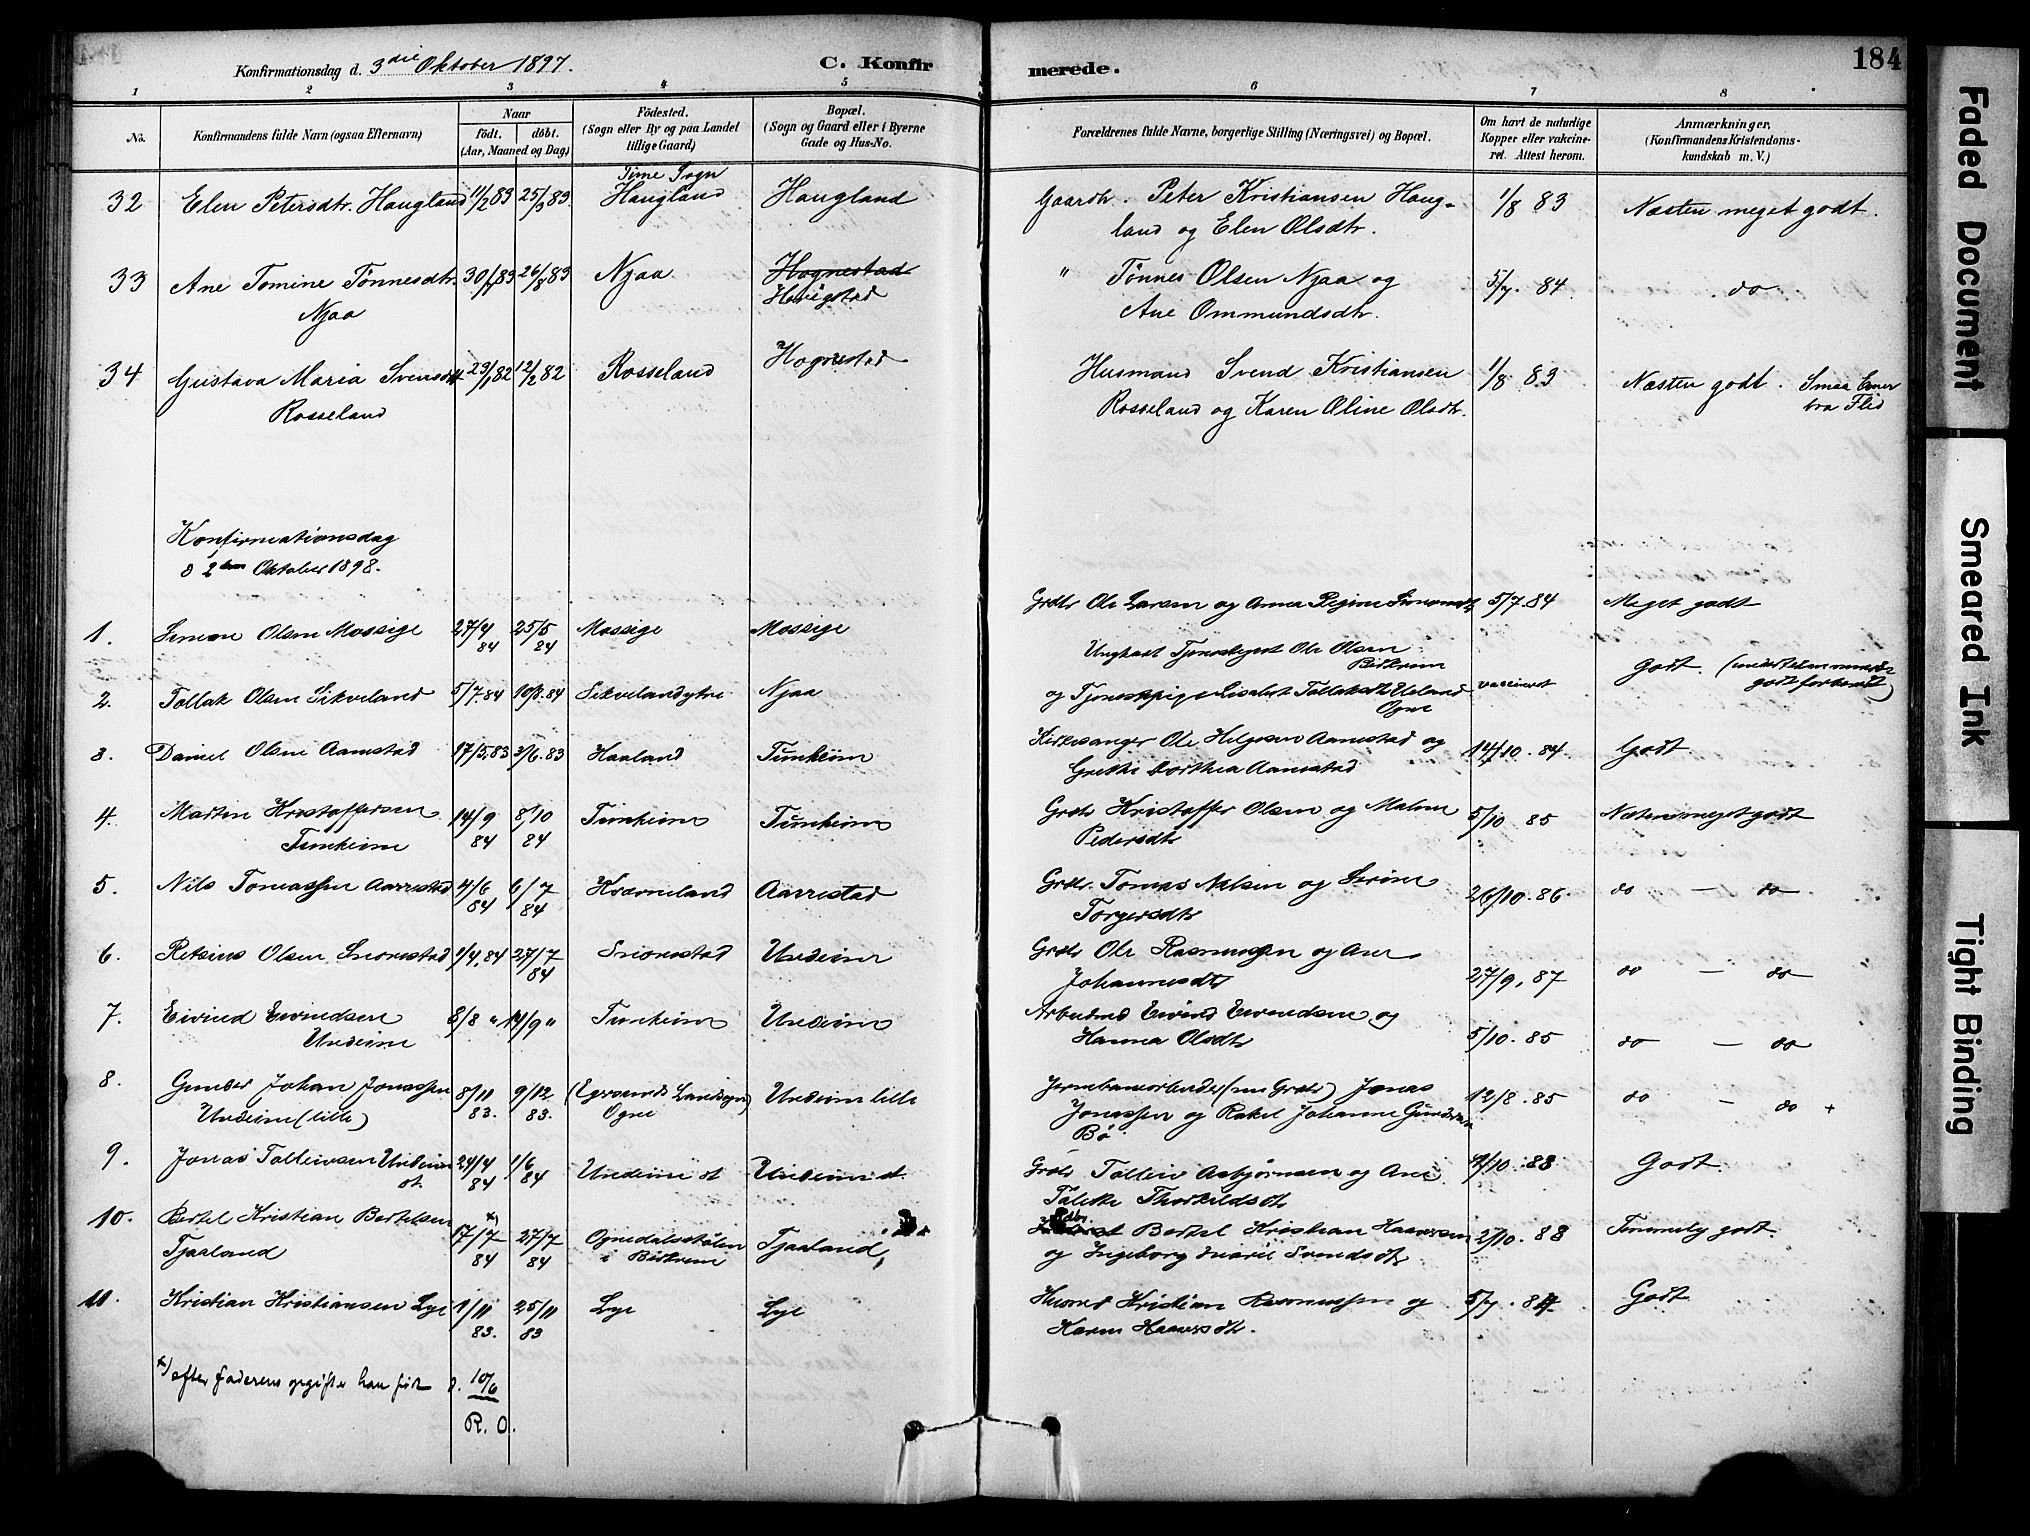 Konfirmationsdag d. 3die Oktober 1897. C. Konfirmerede. 184
1 2 3 4 5 6 7 8
No. Konfirmandens fulde Navn (ogsaa Efternavn) Naar födt. döbt. (Aar, Maaned og Dag) Födested. (Sogn eller By og paa Landet tillige Gaard) Bopæl. (Sogn og Gaard eller i Byerne Gade og Hus-No. Forældrenes fulde Navne, borgerlige Stilling (Næringsvei) og Bopæl. Om havt de naturlige Kopper eller vakcineret. Attest herom. Anmærkninger, (Konfirmandens Kristendomskundskab m. V.)
Time Sogn
32 Elen Petersdtr. Haugland 11/2 83 25/3 83. Haugland Haugland Gaardbr. Peter Kristiansen Haug- 1/8 83 Næsten meget godt.
land og Elen Olsdtr.
33 Ane Tomine Tönnesdtr. 26/8 83 Njaa Hognestad " Tönnes Olsen Njaa og 5/7. 84. do
Njaa Ane Ommundsdtr.
34 Gustava Maria Svensdtr 23/1 82 12/2 82 Rosseland Hognestad Husmand Svend Kristiansen 1/8 83 Næsten godt.
Rosseland Rosseland og Karen Oline Olsdtr. bra Flid
Konfirmationsdag
d 2den Oktober 1898.
1. Simon Olsen Mossige 27/4 84 25/5 84 Mossige Mossige Grdbr Ole Larsen og Anna Regine 5/7. 84 Meget godt
2. Tollak Olsen Sikveland 5/7. 84 10/8. 84 Sikveland ytre Njaa Ungkarl Ole Olsen Godt.
og Tjenestepige Lisabet Ueland Ogne vaccineret
3. Daniel Olsen Aamstad 17/5. 83 3/6. 83 Haaland Tunheim Kirkesanger Ole Helgesen Aamstad og 14/10. 84. Godt.
Grethe Dorthea Aamstad
4. Martin Kristoffersen 14/9 84 8/10 84 Tunheim Tunheim Grdbr Kristoffer Olsen og Malene 5/10 85 Næsten meget godt
Tunheim Pedersdtr
5. Nils Tomassen Aarrestad 4/6 84 6/7 84 Kværneland Aarrestad Grdbr. Tomas Nilsen og Serine 26/10. 86. do — do
Torgersdtr
6. Retsius Olsen Sniorestad 1/4. 84 27/7 84 Sniorestad Undeim Grdbr Ole Rasmussen og Ane
Johannesdtr 27/9. 87 do — do
7. Eivind Eivindsen 8/8 " 14/9 " Tunheim Undeim Arbmand Eivind Eivindsen og
Undeim Hanna Olsdtr 5/10. 85 do — do
8. Gunder Johan Jonassen 8/11 83. 9/12 83. (Egersunds Landsogn) Ogne Undeim lille Jernbanearbeider (nu Grdbr) Jonas 12/8. 85 do — do +
Undeim (lille) Jonassen og Rakel Johanne Gundersen
Bö
9. Jonas Tolleivsen Undeim st. 24/4 84 1/6 84 Undeim st Undeim st. Grdbr Tolleiv Asbjörnsen og Ane 4/10. 88 Godt
Talette Thorkildsdtr
10. Bertel Kristian Bertelsen 17/7 x) 84 27/7 84 Ognedalsstölen Tjaaland, Bertel Kristian Haaversen 2/10. 88 Temmelig godt.
Tjaaland i Birkrem og Ingeborg Marie Svendsdtr
11. Kristian Kristiansen Lye 1/11 83. 25/11 83 Lye Lye Husmd Kristian Rasmussen og 5/7. 84 Godt
Karen Haaversdtr.
x) efter faderens opgifte han föd d. 10/6
R. O.
Faded Document
Smeared Ink
Tight Binding